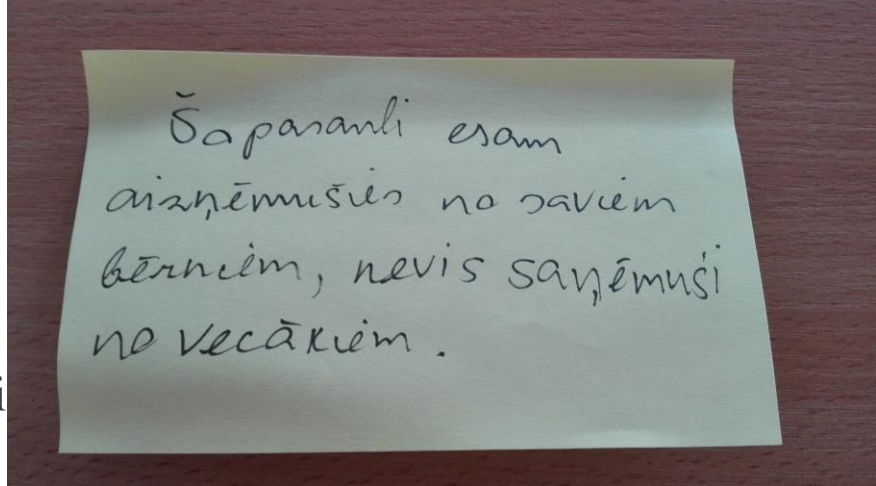 Šo pasauli esam
aizņēmušies no saviem
bērniem, nevis saņēmuši
no vecākiem.